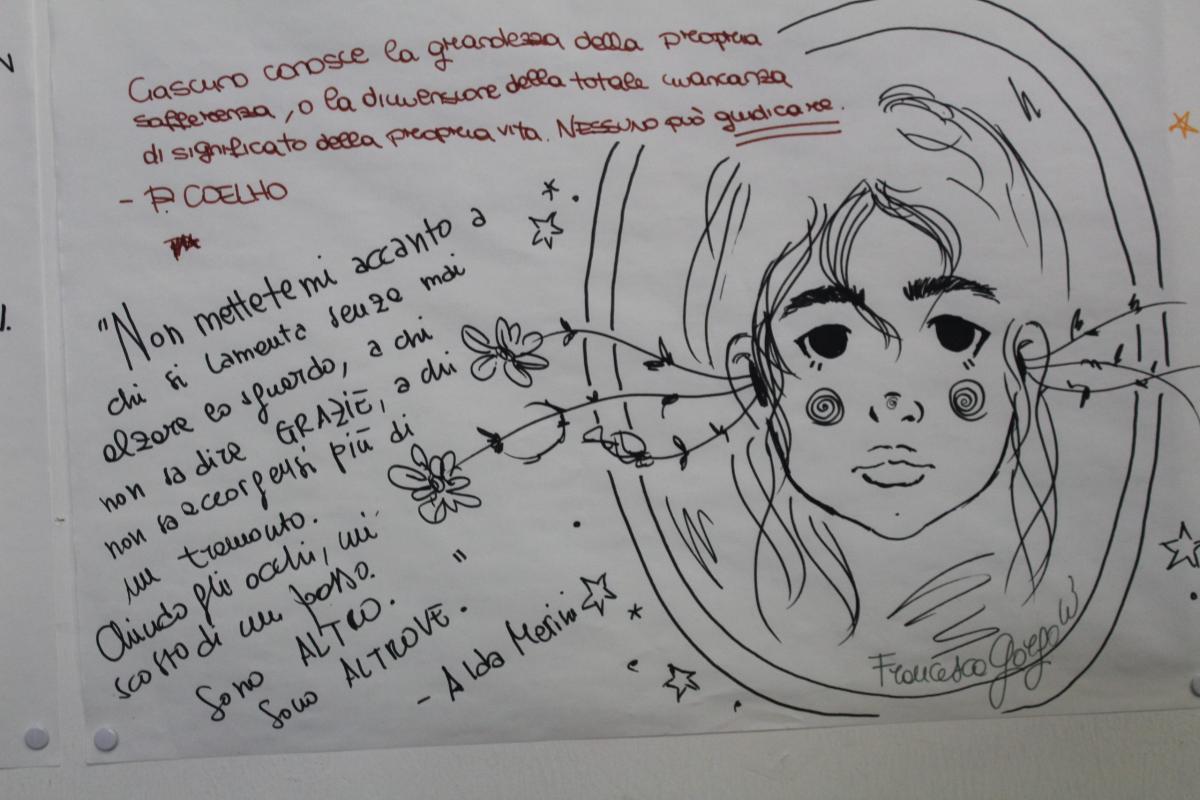 Ciascuno conosce la grandezza della propria
sofferenza, o la dimensione della totale mancanza
di significato della propria vita. NESSUNO può giudicare.
- P. COELHO
"Non mettetemi accanto a
chi si lamenta senza mai
alzare lo sguardo, a chi
non sa dire GRAZIE, a chi
non sa accorgersi più di
un tramonto.
Chiudo gli occhi, mi
scosto di un passo.
Sono ALTRO. "
Sono ALTROVE.
- Alda Merini
Francesco